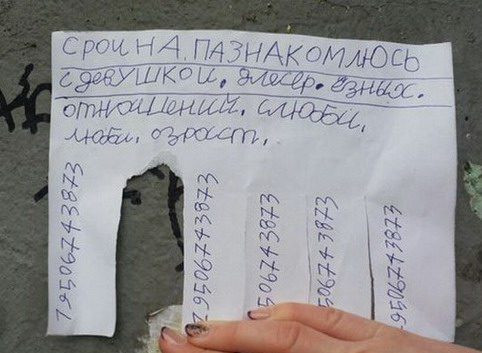 СРОЙНА, ПАЗНАКОМЛЮСЬ
С девушкой, длесер. ёзных.
отнашений, слюбы,
любы, озраст,.
79506743873
79506743873
506743873
506743873
9506743873